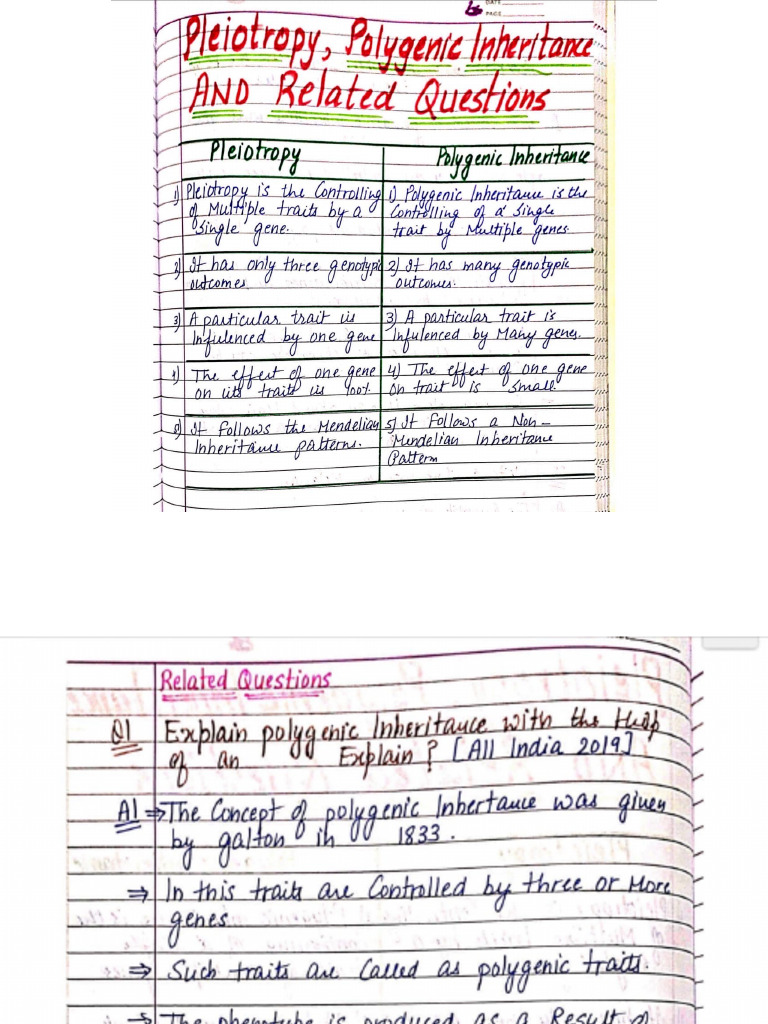 DATE
PAGE
Pleiotropy, Polygenic Inheritance
AND Related Questions
Pleiotropy
Polygenic Inheritance
1) Pleiotropy is the Controlling
of Multiple traits by a
Single gene.
1) Polygenic Inheritance is the
Controlling of a Single
trait by Multiple genes.
2) It has only three genotypic
outcomes.
2) It has many genotypic
outcomes.
3) A particular trait is
Infulenced by one gene
3) A particular trait is
Infulenced by Many genes.
4) The effect of one gene
on its traits is 100%
4) The effect of one gene
on trait is small.
5) It follows the Mendelian
Inheritance patterns.
5) It follows a Non-
Mendelian Inheritance
Pattern
Related Questions
Q1 Explain polygenic Inheritance with the Help
of an Explain ? [All India 2019]
A1 ⇒ The Concept of polygenic Inhertance was given
by galton in 1833.
⇒ In this traits are Controlled by three or More
genes
⇒ Such traits are Called as polygenic traits.
⇒ The phenotype is produced as a Result of